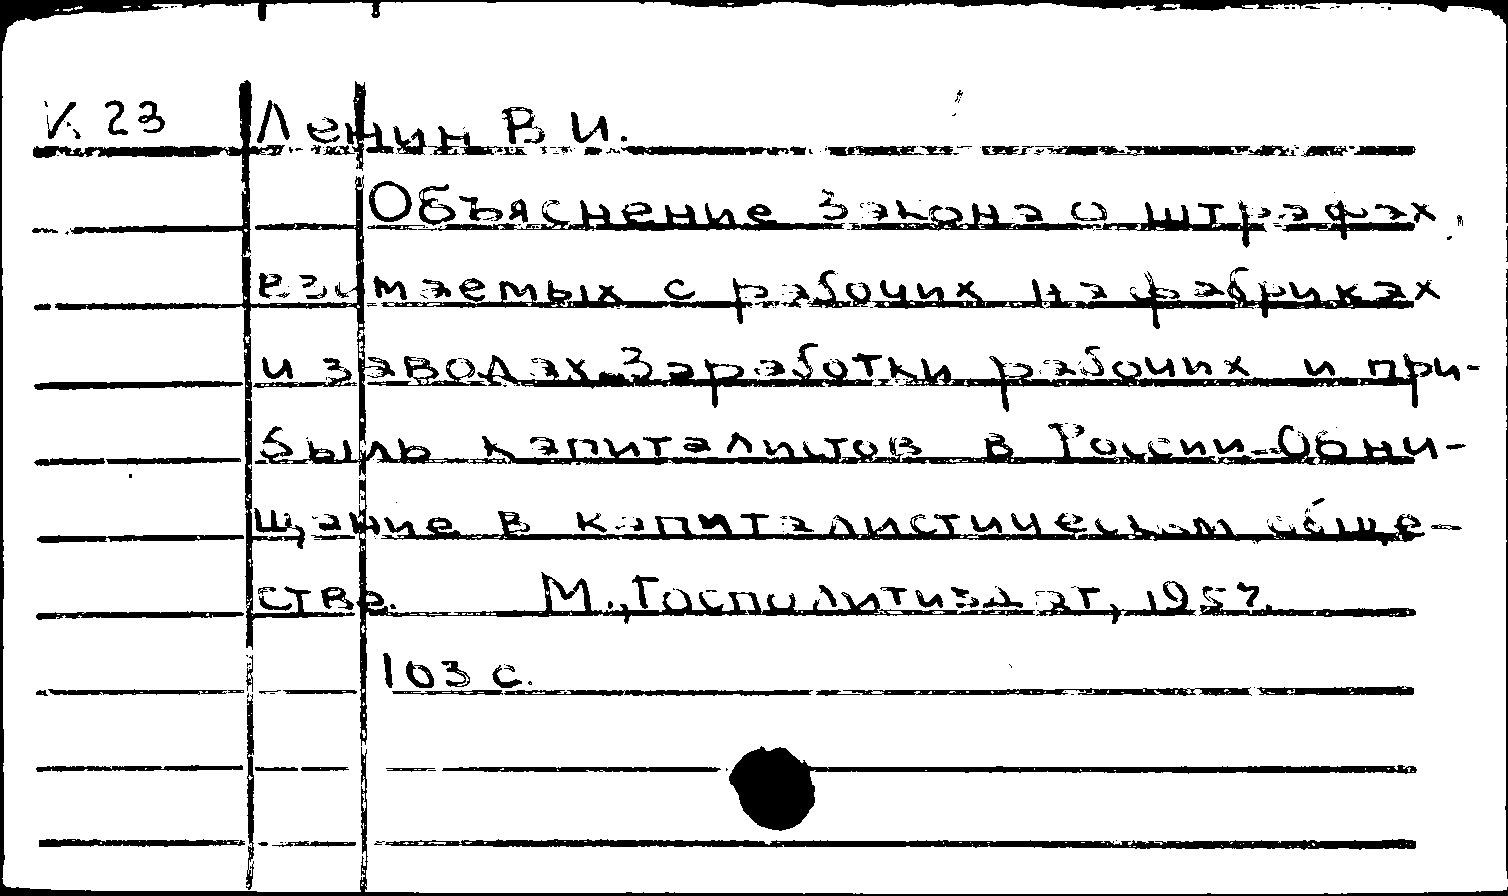 К 23 Ленин В И.
Объяснение закона о штрафах,
взимаемых с рабочих на фабриках
и заводах.-Заработки рабочих и при-
быль капиталистов в России.-Обни-
щание в капиталистическом обще-
стве. М., Госполитиздат, 1957.
103 с.